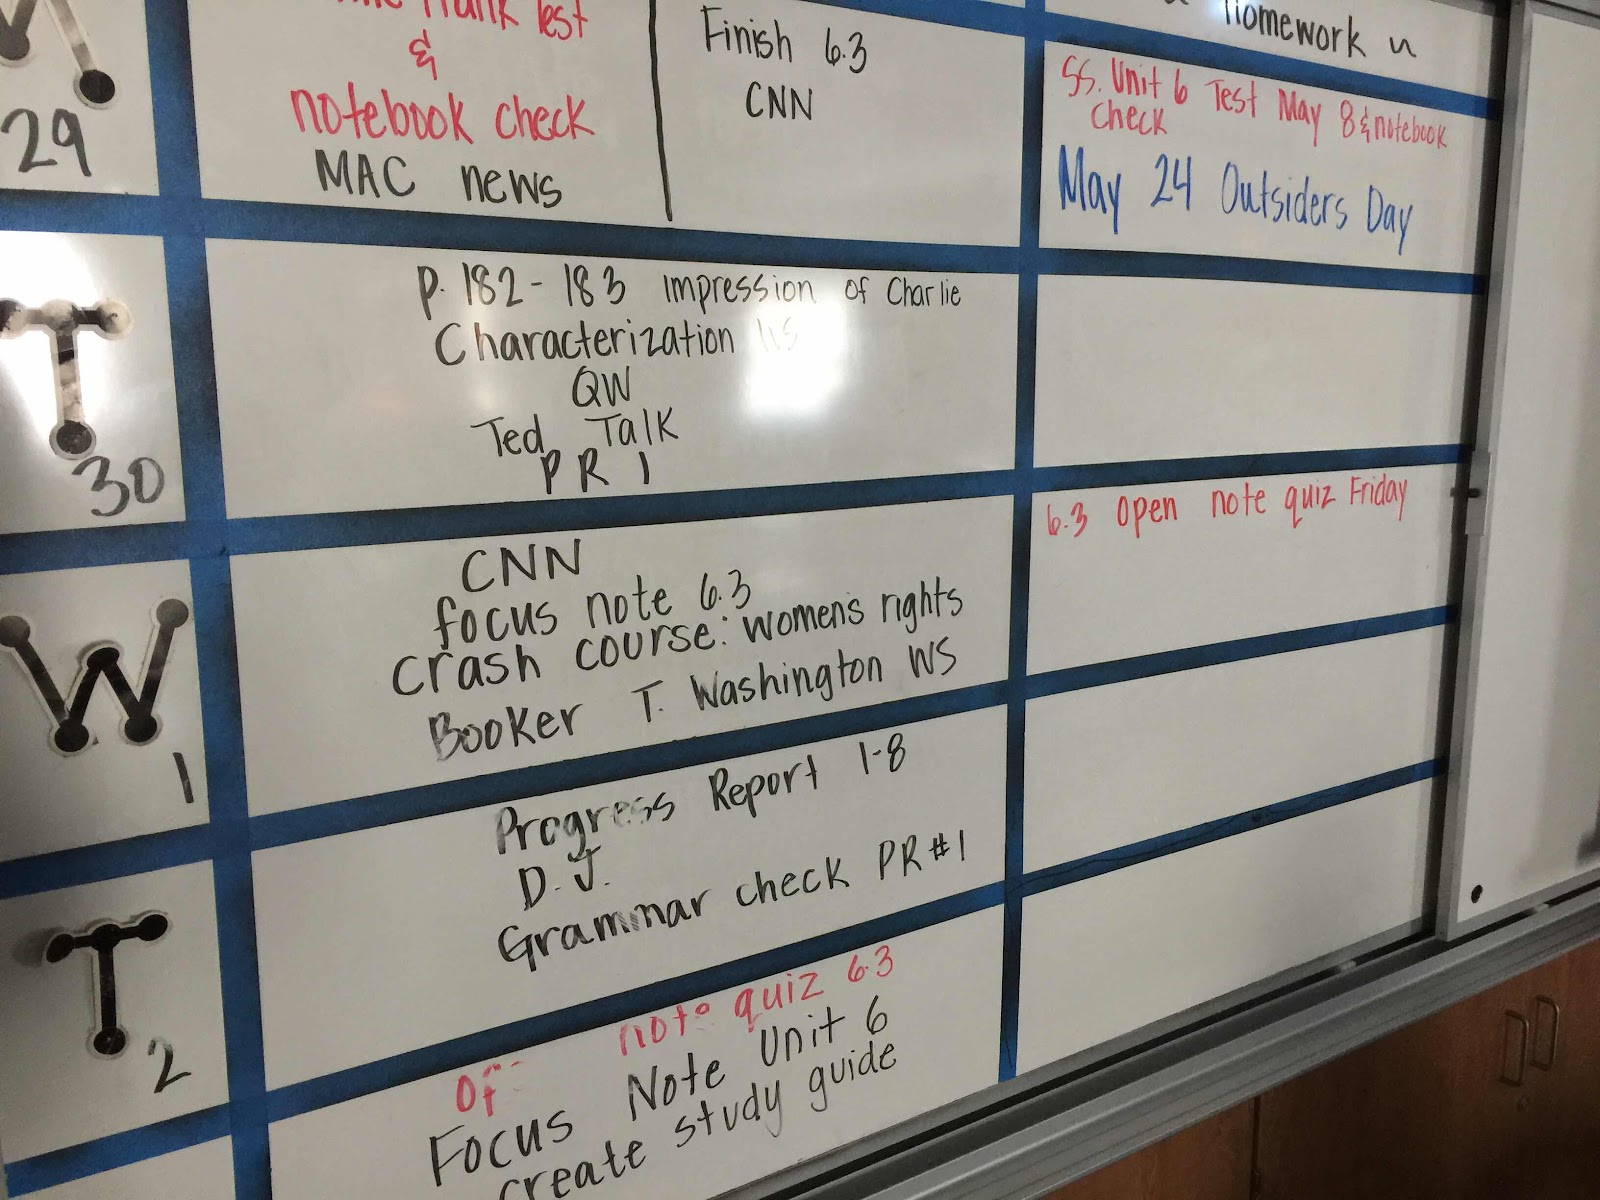 Test
&
notebook check
MAC news
29
Finish 6.3
CNN
Homework
SS. Unit 6 Test May 8 & notebook
check
May 24 Outsiders Day
T
30
p. 182-183 impression of Charlie
Characterization WS
QW
Ted Talk
PR 1
W
1
CNN
focus note 6.3
crash course: women's rights
Booker T. Washington WS
6.3 open note quiz Friday
T
2
Progress Report 1-8
D.J.
Grammar check PR #1
note quiz 6.3
Focus Note Unit 6
create study guide